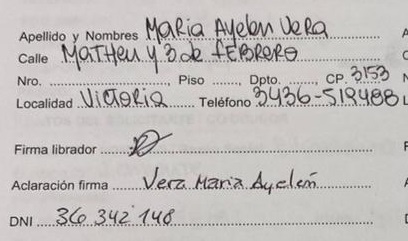 Apellido y Nombres Maria Ayelen Vera
Calle Matheu y 3 de febrero
Nro. Piso Dpto. CP. 3153
Localidad Victoria Teléfono 3436-519488
Firma librador
Aclaración firma Vera Maria Ayelén
DNI 36 342 148